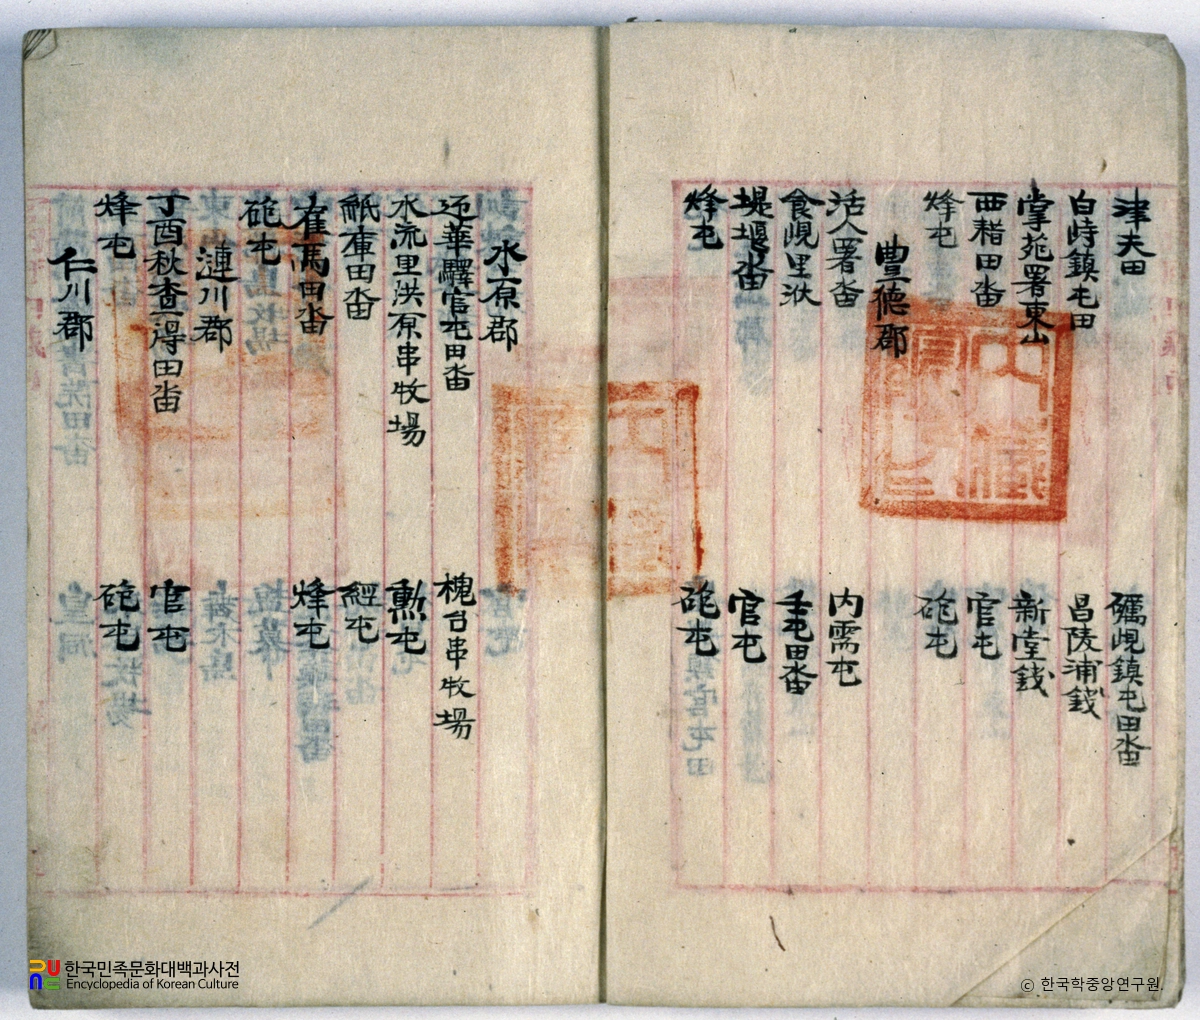 津夫田
礪峴鎮屯田畓
白峙鎮屯田
昌陵浦錢
掌苑署東山
新堂錢
西耤田畓
官屯
烽屯
砲屯
豊德郡
活人署畓
內需屯
食峴里洑
壬屯田畓
堤堰畓
官屯
烽屯
砲屯
水原郡
迎華驛官屯田畓
槐台串牧場
水流里洪原串牧場
勲屯
紙庫田畓
經屯
雇馬田畓
烽屯
砲屯
漣川郡
丁酉秋查得田畓
官屯
烽屯
砲屯
仁川郡
內藏
한국민족문화대백과사전
Encyclopedia of Korean Culture
ⓒ 한국학중앙연구원.